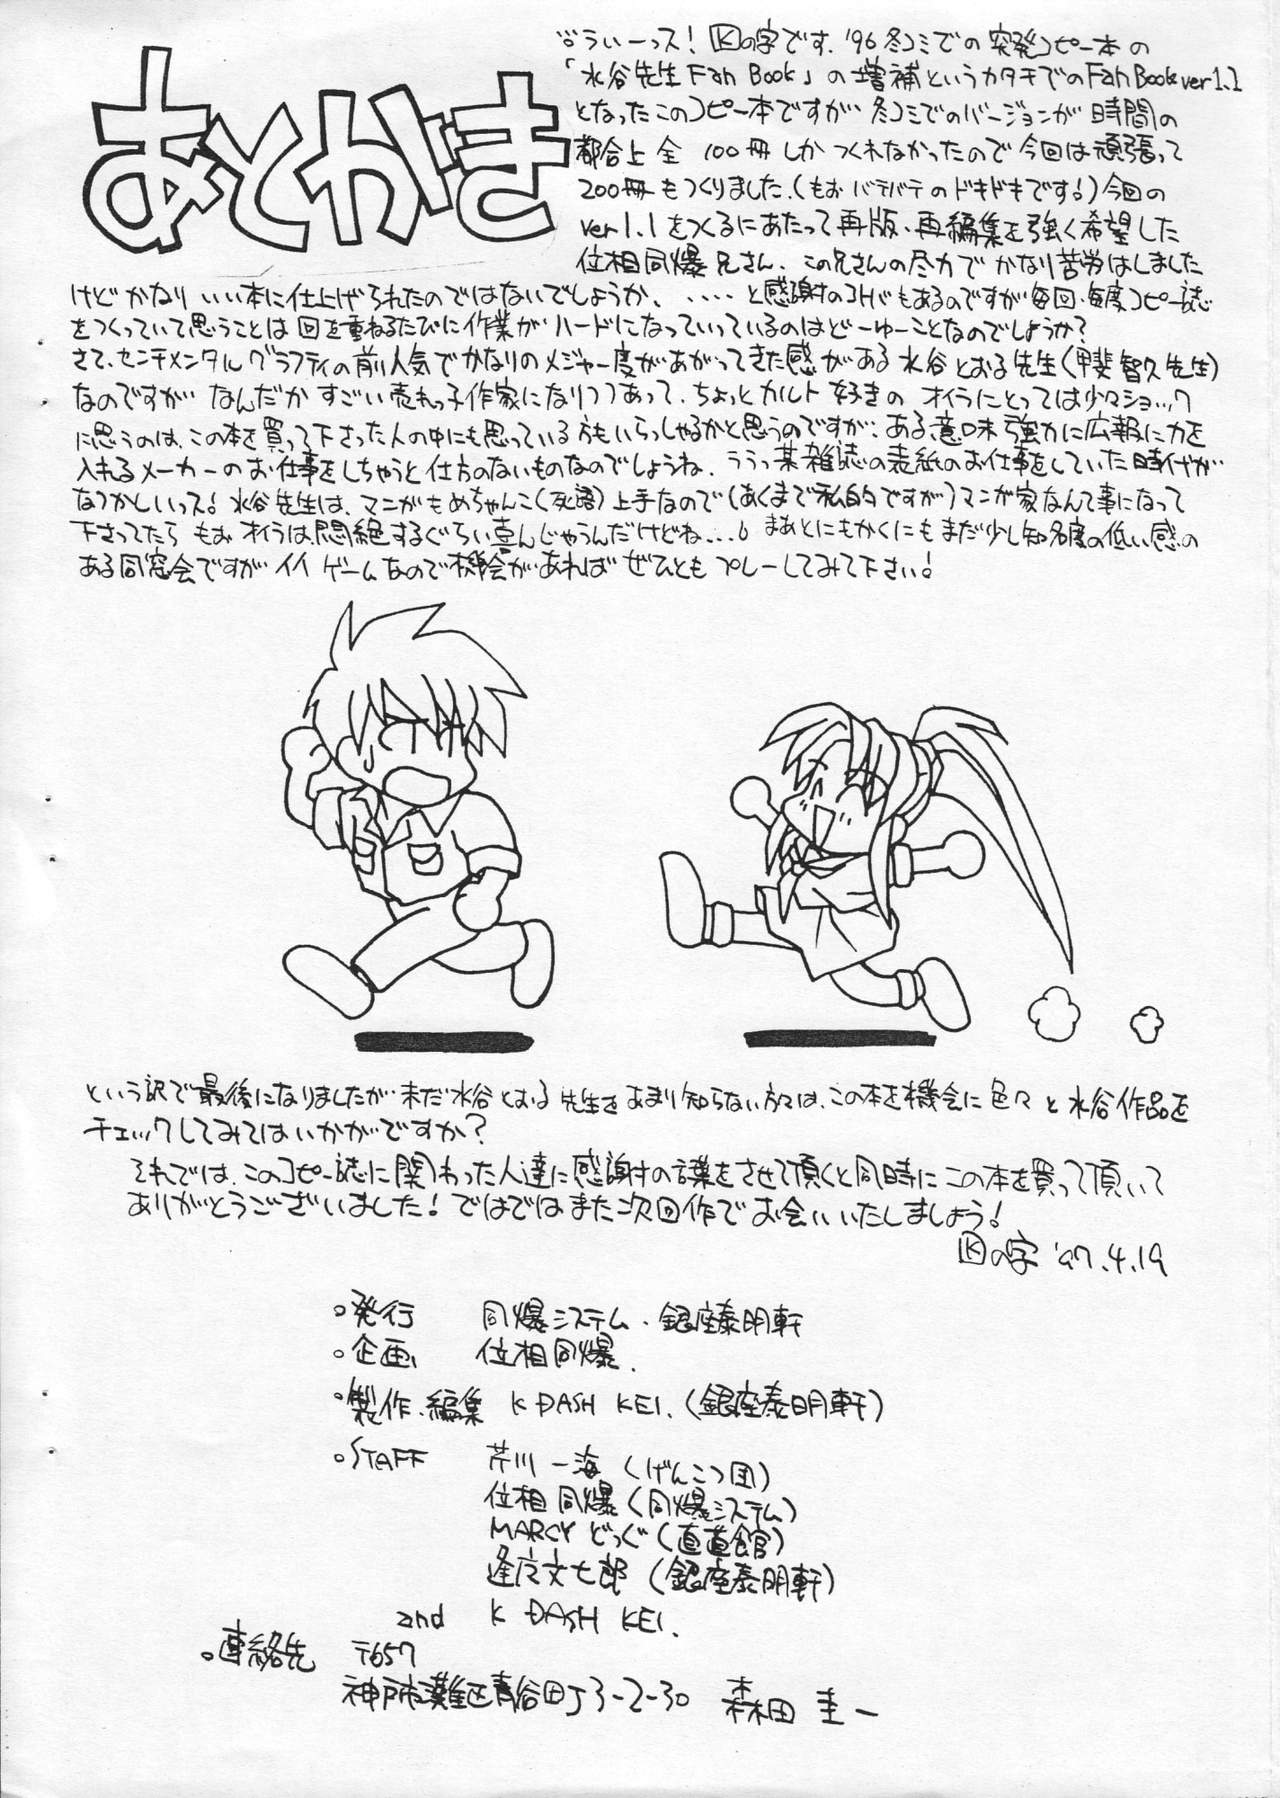 あとがき
ういーっス！Kの字です、'96冬コミでの突発コピー本の
「水谷先生Fan Book」の増補というカタチでのFan Book ver1.1
となったこのコピー本ですが冬コミでのバージョンが時間の
都合上全100冊しかつくれなかったので今回は頑張って
200冊もつくりました、（もおバテバテのドキドキです！）今回の
ver1.1をつくるにあたって再版、再編集を強く希望した
位相同爆兄さん、この兄さんの尽力でかなり苦労はしました
けどかなりいい本に仕上げられたのではないでしょうか、‥‥と感謝の人もあるのですが毎回・毎度コピー誌
をつくっていて思うことは回を重ねるたびに作業がハードになっていっているのはどーゆーことなのでしょうか？
さて、センチメンタルグラフティの前人気でかなりのメジャー度があがってきた感がある水谷とおる先生（甲斐智久先生）
なのですがなんだかすごい売れっ子作家になりつつあって、ちょっとカルト好きのオイラにとっては少々ショック
に思うのは、この本を買って下さった人の中にも思っている方もいらっしゃるかと思うのですが、ある意味強力に広報に力を
入れるメーカーのお仕事をしちゃうと仕方のないものなのでしょうね、ううっ某雑誌の表紙のお仕事をしていた時代が
なつかしいっス！水谷先生は、マンガもめちゃんこ（死語）上手なので（あくまで私的ですが）マンガ家なんて事になって
下さってたらもおオイラは、悶絶するぐらい喜んじゃうんだけどね…。まあとにもかくにもまだ少し知名度の低い感の
ある同窓会ですがイイゲームなので機会があればぜひともプレーしてみて下さい！
という訳で最後になりましたが未だ水谷とおる先生をあまり知らない方々は、この本を機会に色々と水谷作品を
チェックしてみてはいかがですか？
それでは、このコピー誌に関わった人達に感謝の言葉をさせて頂くと同時にこの本を買って頂いて
ありがとうございました！ではではまた次回作でお会いいたしましょう！
Kの字 '97.4.19
○発行 同爆システム・銀座泰明軒
○企画 位相同爆
○製作・編集 K DASH KEI.（銀座泰明軒）
○STAFF 芹川一海（げんこつ団）
位相同爆（同爆システム）
MARCYどっぐ（直道館）
逢広文七郎（銀座泰明軒）
and K DASH KEI.
○連絡先 〒657
神戸市灘区青谷町3-2-30 森田圭一